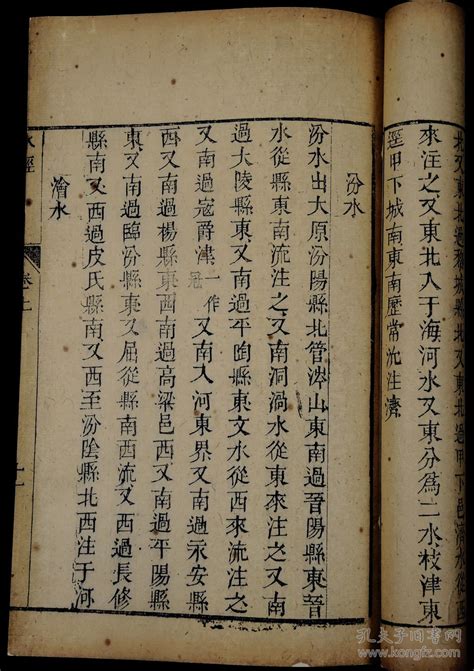 又東北過黎城縣北又東北過甲下邑濟水從西
來注之又東北入于海河水又東分爲二水枝津東
逕甲下城南東南歷常沇注濟
汾水
汾水出大原汾陽縣北管涔山東南過晉陽縣東晉
水從縣東南流注之又南洞渦水從東來注之又南
過大陵縣東又南過平陶縣東文水從西來流注之
又南過寇爵津一作冠又南入河東界又南過永安縣
西又南過楊縣東西南過高梁邑西又南過平陽縣
東又南過臨汾縣東又屈從縣南西流又西過長修
縣南又西過皮氏縣南又西至汾陰縣北西注于河
澮水
水經
孔夫子旧书网
www.kongfz.com